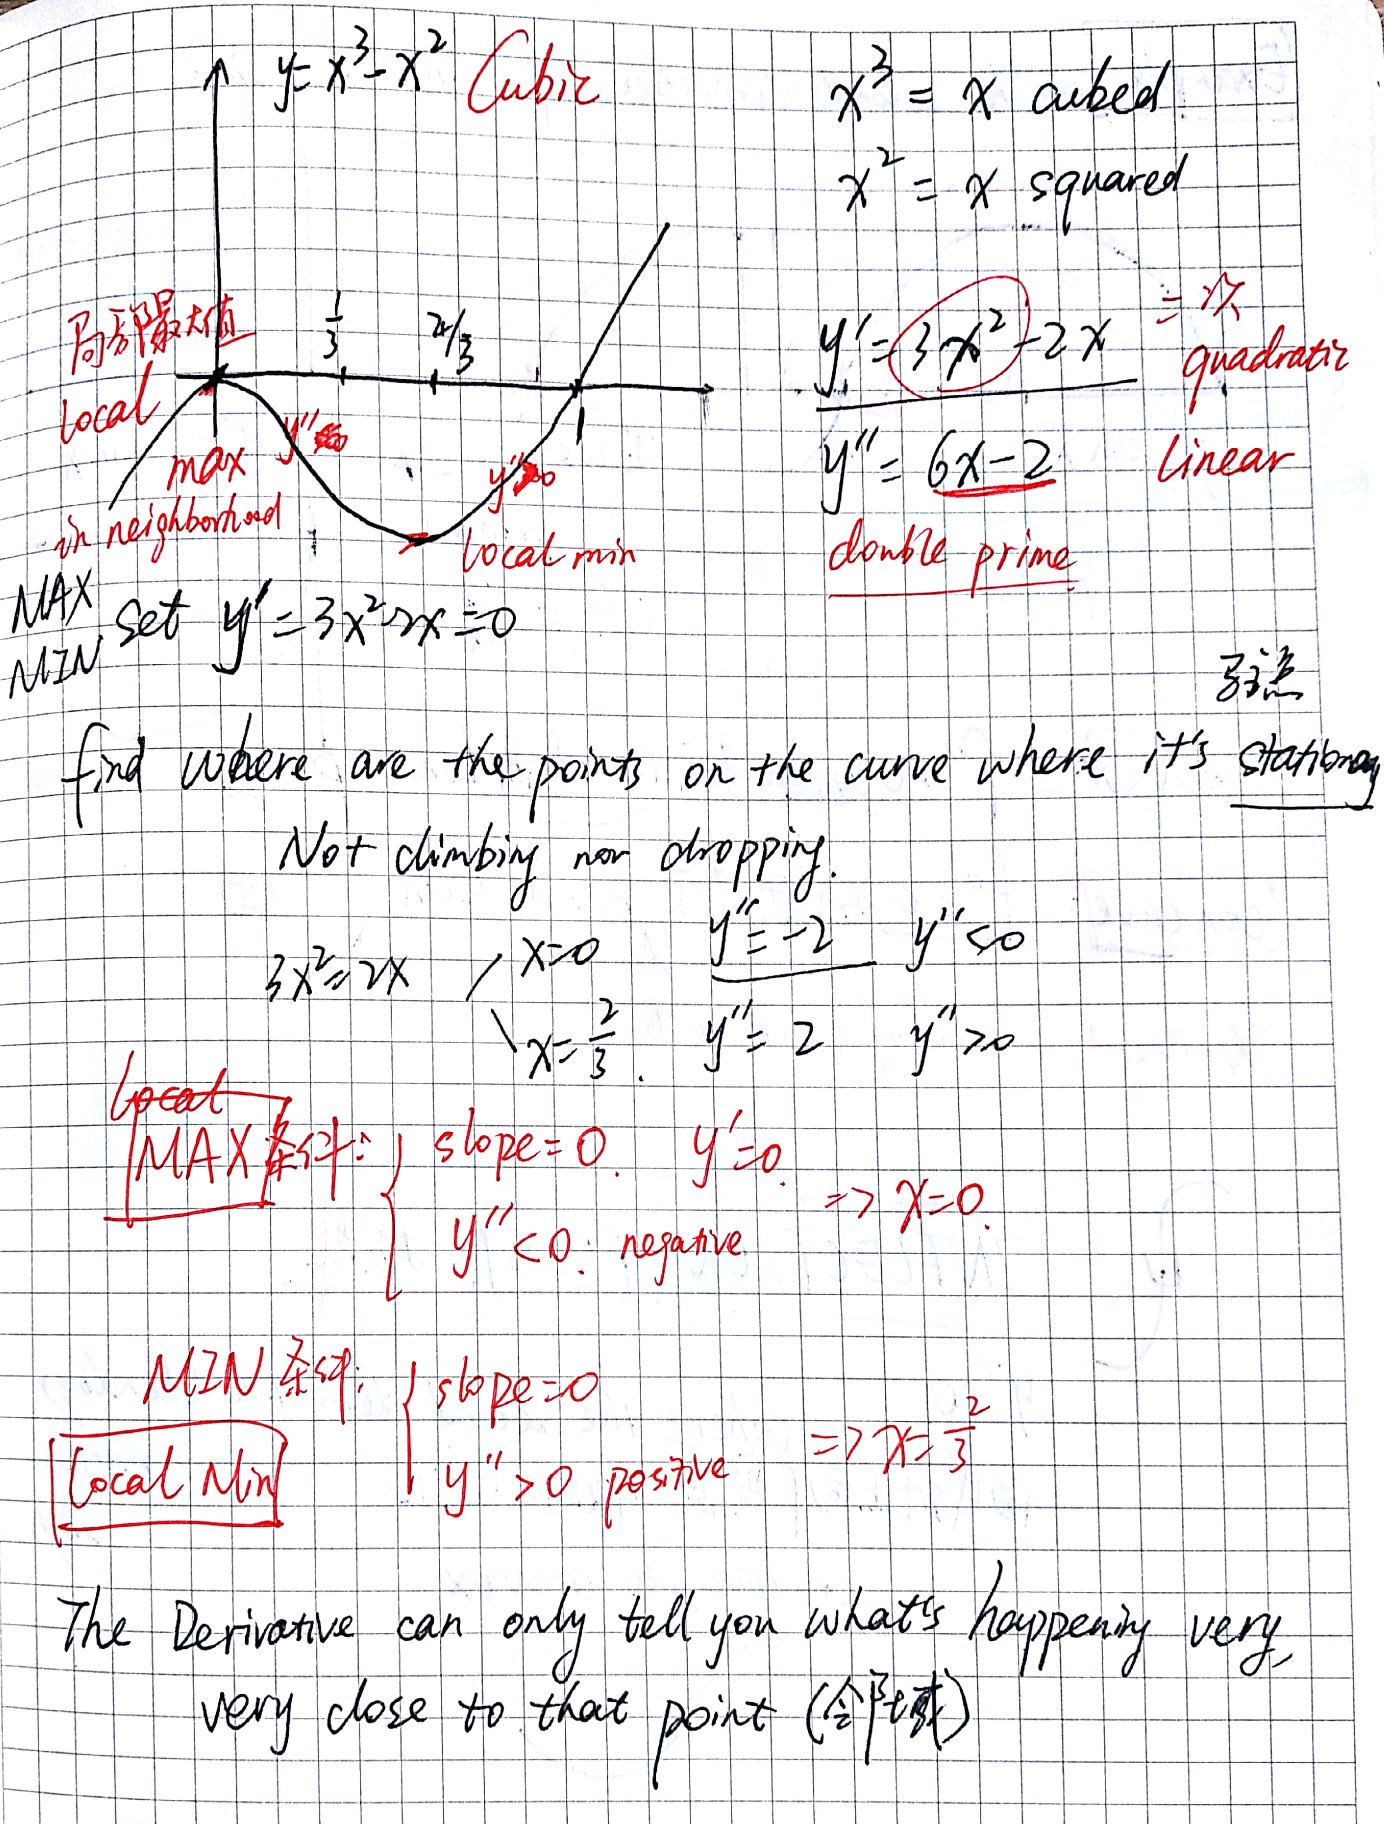 y = x³ - x² Cubic
x³ = x cubed
x² = x squared
局部最大值
1/3
2/3
1
local
max
in neighborhood
y''<0
y''>0
local min
y' = 3x² - 2x = 次
quadratic
y'' = 6x - 2 linear
double prime
MAX
MIN
set y' = 3x² - 2x = 0
驻点
find where are the points on the curve where it's stationary
Not climbing nor dropping.
3x² = 2x
x = 0 y'' = -2 y'' < 0
x = 2/3. y'' = 2 y'' > 0
Local
MAX 条件: slope = 0. y' = 0.
y'' < 0. negative
=> x = 0.
MIN 条件: slope = 0
Local Min
y'' > 0 positive
=> x = 2/3
The Derivative can only tell you what's happening very,
very close to that point (邻域)